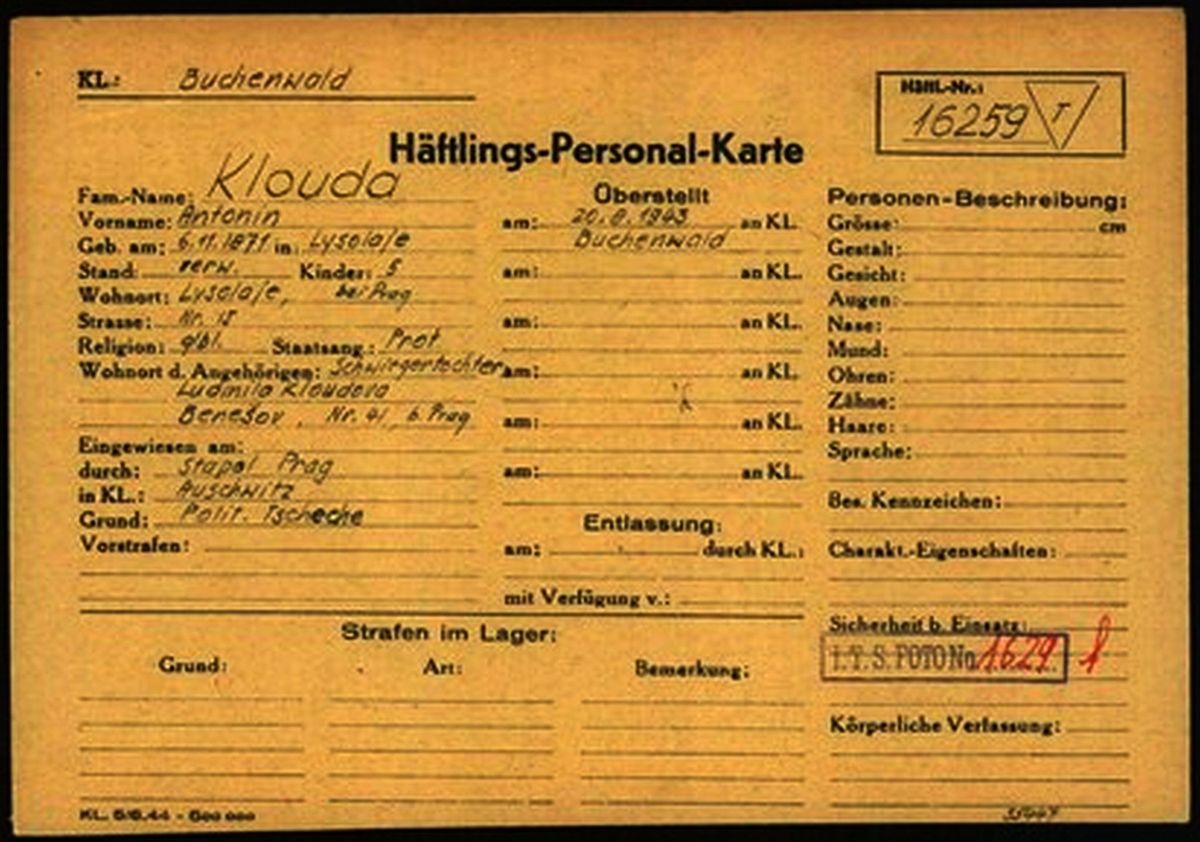 KL.: Buchenwald
Häftl.-Nr.:
16259 T
Häftlings-Personal-Karte
Fam.-Name: Klouda
Vorname: Antonin
Geb. am: 6.11.1871 in: Lysolaje
Stand: verw. Kinder: 5
Wohnort: Lysolaje, bei Prag
Strasse: Nr. 15
Religion: Staatsang.: Prot
Wohnort d. Angehörigen: Schwirgertochter
Ludmila Kloudova
Benešov, Nr. 41, b. Prag
Eingewiesen am:
durch: Stapol Prag
in KL.: Auschwitz
Grund: Polit. Tscheche
Vorstrafen:
Überstellt
am: 20.8.1943 an KL.
Buchenwald
am: an KL.
am: an KL.
am: an KL.
am: an KL.
am: an KL.
Entlassung:
am: durch KL.:
mit Verfügung v.:
Personen-Beschreibung:
Grösse: cm
Gestalt:
Gesicht:
Augen:
Nase:
Mund:
Ohren:
Zähne:
Haare:
Sprache:
Bes. Kennzeichen:
Charakt.-Eigenschaften:
Sicherheit b. Einsatz:
I.T.S. FOTO No 1629
Körperliche Verfassung:
Strafen im Lager:
Grund: Art: Bemerkung:
KL. 5/6.44 - 500 000